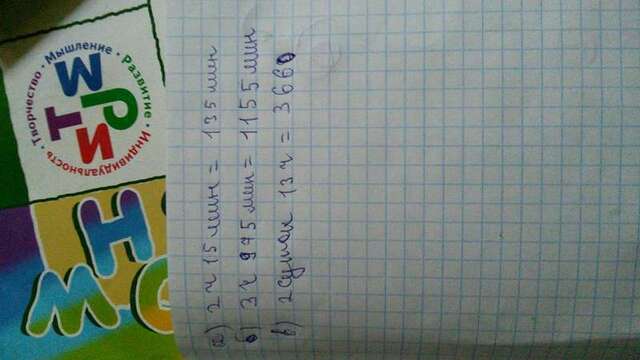 Творчество • Мышление • Развитие • Индивидуальность •
ИТРМ
а) 2ч 15 мин = 135 мин
б) 3ч 975 мин = 1155 мин
в) 2 суток 13 ч = 3660